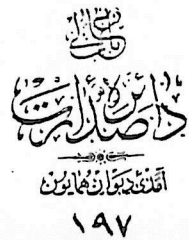 باب عالی
دائرۀ صدارت
آمدئ دیوان همایون
١٩٧